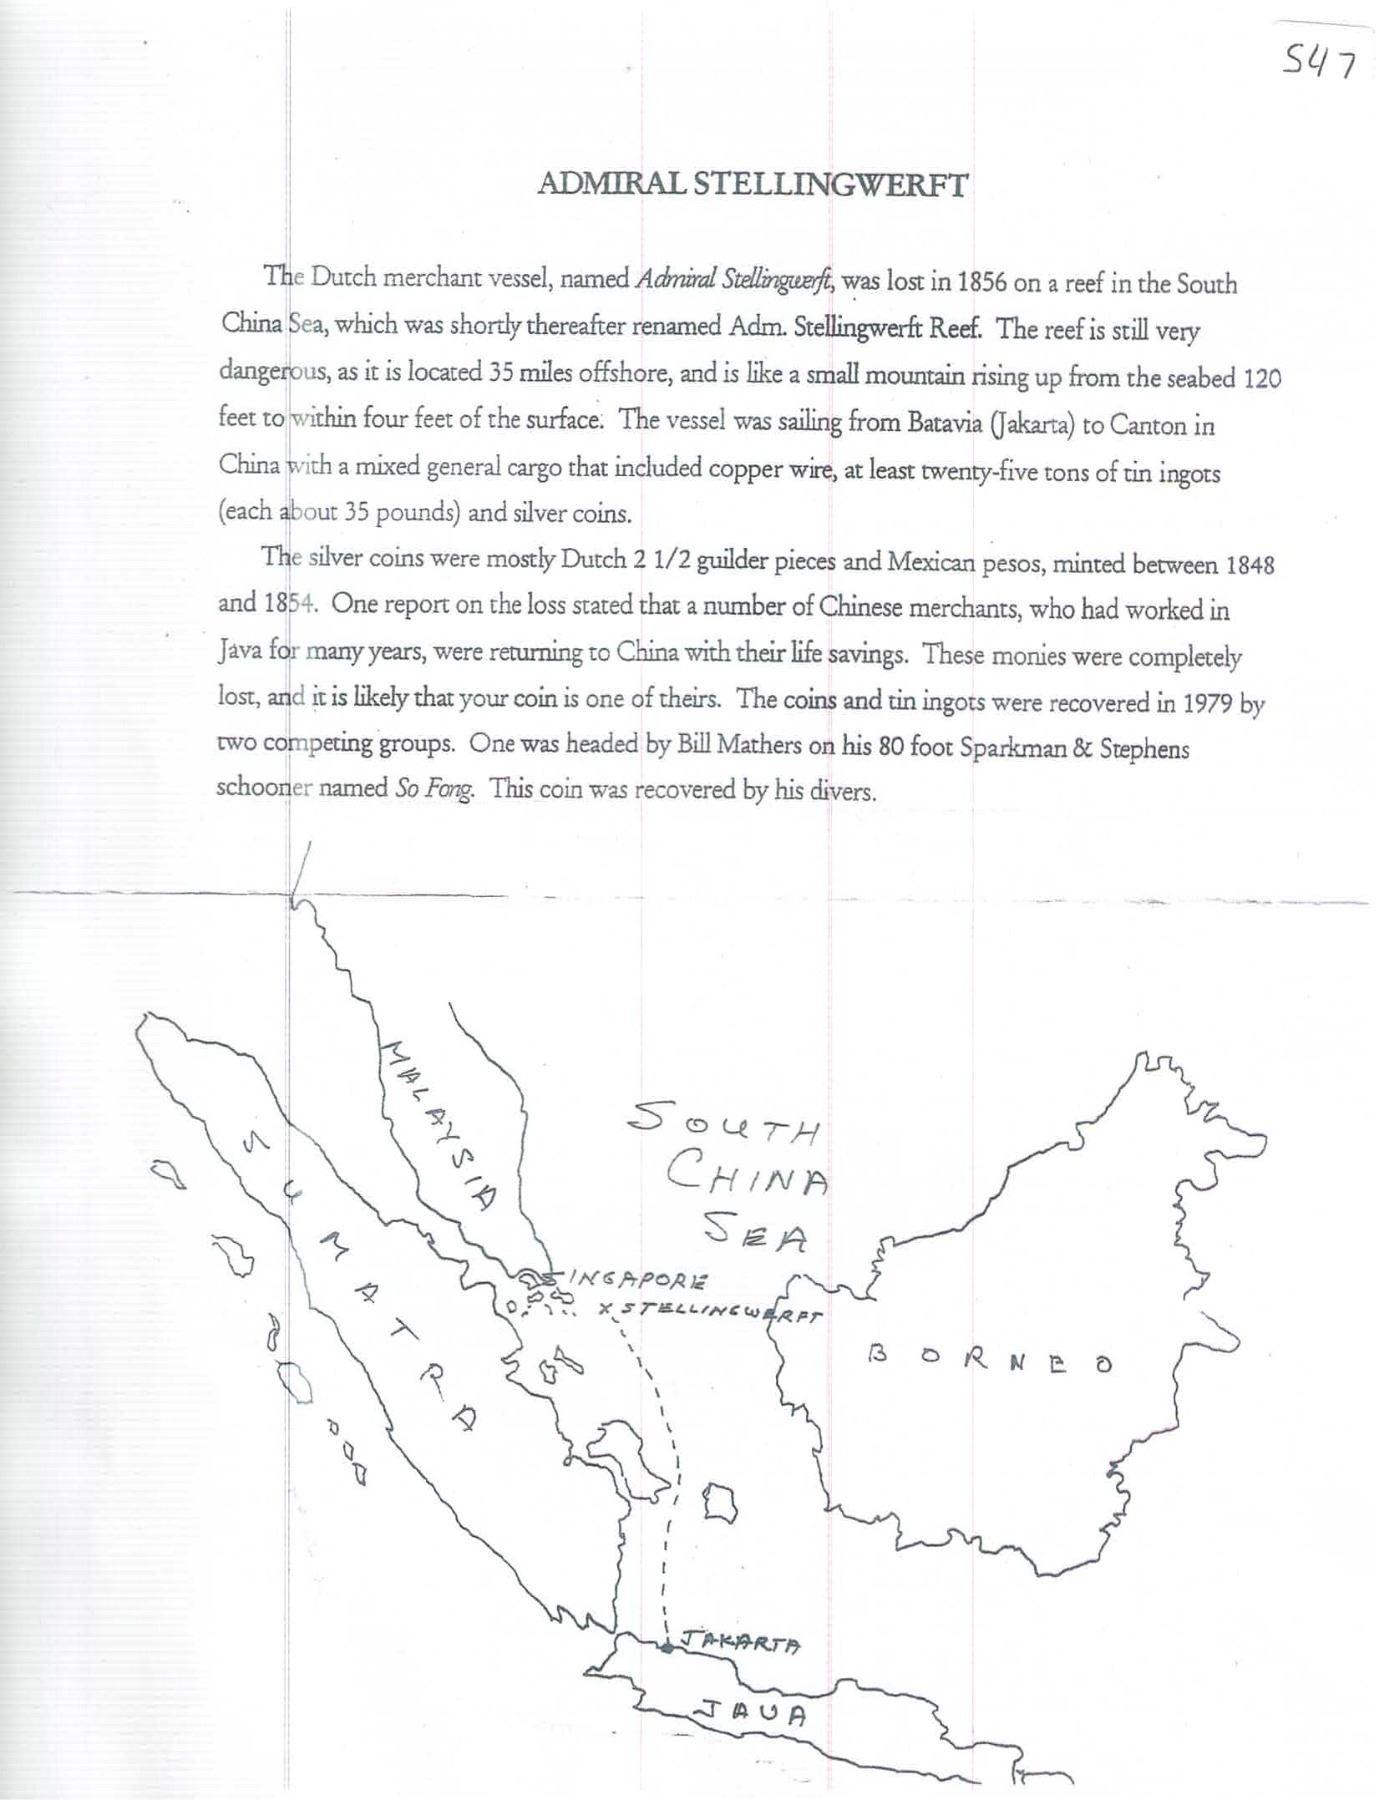 S47
ADMIRAL STELLINGWERFT
The Dutch merchant vessel, named Admiral Stellingwerft, was lost in 1856 on a reef in the South
China Sea, which was shortly thereafter renamed Adm. Stellingwerft Reef. The reef is still very
dangerous, as it is located 35 miles offshore, and is like a small mountain rising up from the seabed 120
feet to within four feet of the surface. The vessel was sailing from Batavia (Jakarta) to Canton in
China with a mixed general cargo that included copper wire, at least twenty-five tons of tin ingots
(each about 35 pounds) and silver coins.
The silver coins were mostly Dutch 2 1/2 guilder pieces and Mexican pesos, minted between 1848
and 1854. One report on the loss stated that a number of Chinese merchants, who had worked in
Java for many years, were returning to China with their life savings. These monies were completely
lost, and it is likely that your coin is one of theirs. The coins and tin ingots were recovered in 1979 by
two competing groups. One was headed by Bill Mathers on his 80 foot Sparkman & Stephens
schooner named So Fong. This coin was recovered by his divers.
MALAYSIA
SOUTH
CHINA
SEA
SUMATRA
SINGAPORE
X STELLINGWERFT
BORNEO
JAKARTA
JAVA